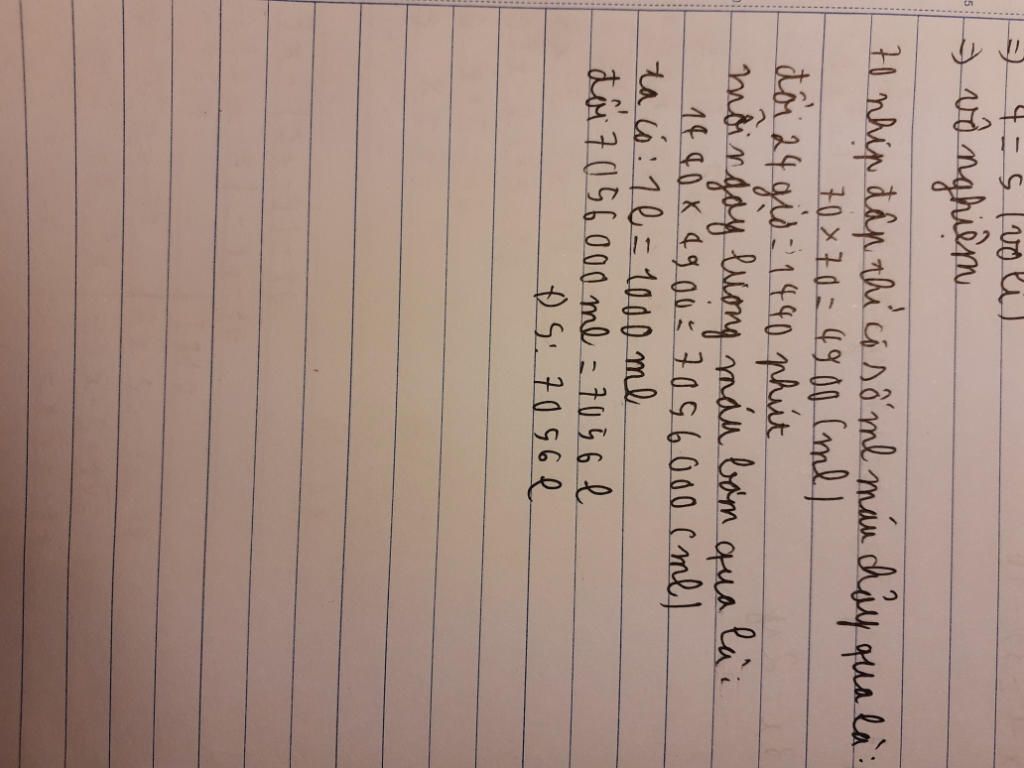 =) 4 = 5 (vô lí)
=) vô nghiệm
70 nhịp đập thì có số ml máu đẩy qua là:
70 × 70 = 4900 (ml)
đổi 24 giờ = 1440 phút
mỗi ngày lượng máu bơm qua là:
1440 × 4900 = 7056000 (ml)
ta có: 1l = 1000 ml
đổi 7056000 ml = 7056 l
Đ S: 7056 l